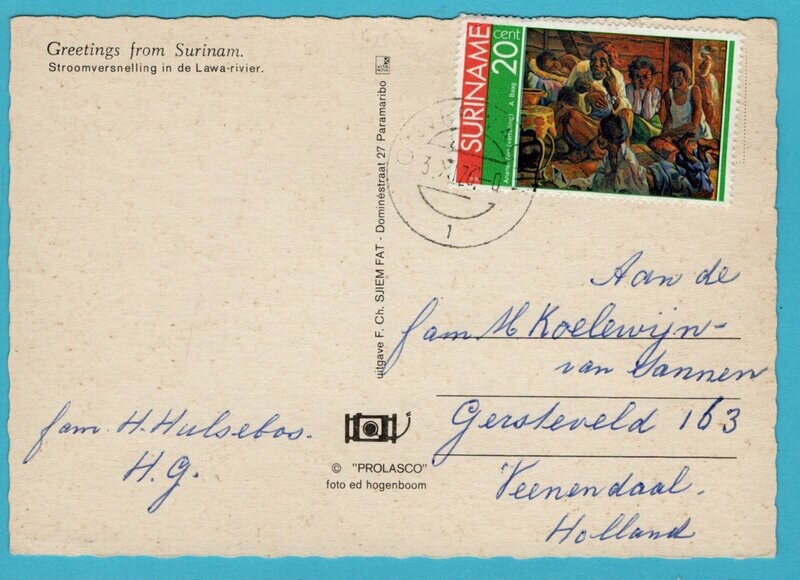 Greetings from Surinam.
Stroomversnelling in de Lawa-rivier.
uitgave F. Ch. SJIEM FAT - Dominéstraat 27 Paramaribo
SURINAME
20 cent
A. Baag
1
Aan de
fam M Koelewijn-
van Sannen
Gersteveld 163
Veenendaal.
Holland
fam. H. Hulsebos.
H.G.
© "PROLASCO"
foto ed hogenboom